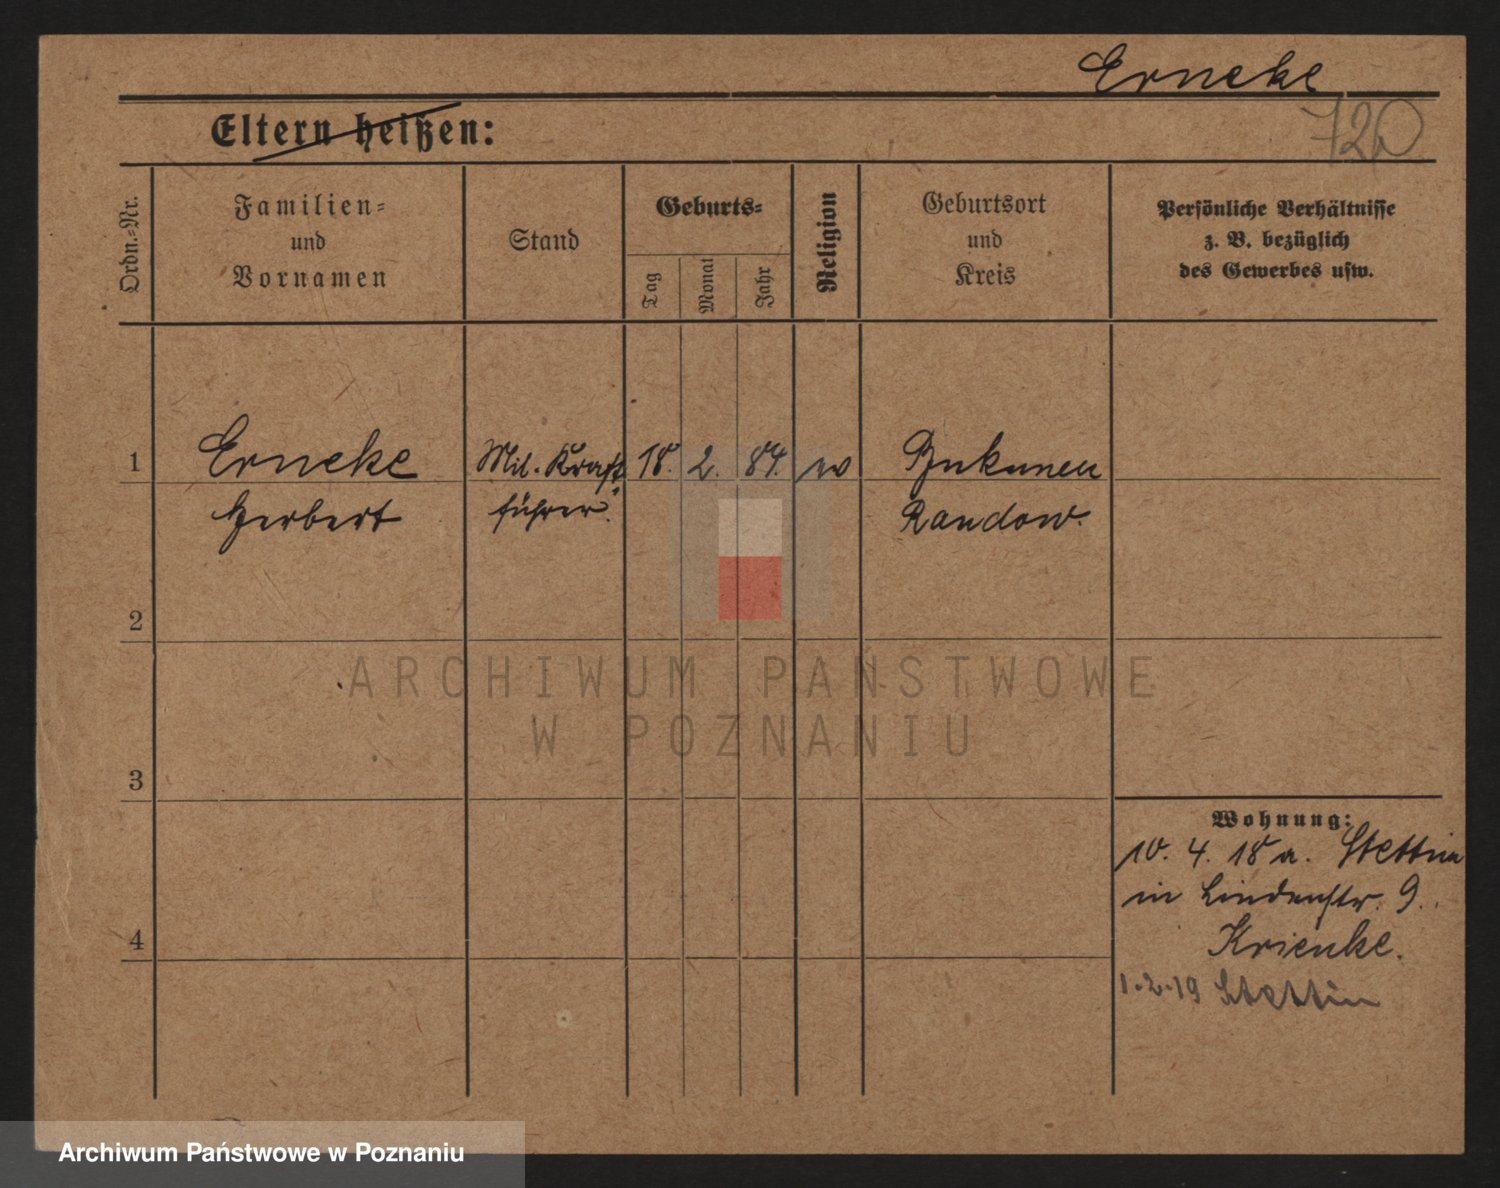 Erneke
720
Eltern heißen:
Ordn.-Nr.
Familien-
und
Vornamen
Stand
Geburts-
Tag
Monat
Jahr
Religion
Geburtsort
und
Kreis
Persönliche Verhältnisse
z. B. bezüglich
des Gewerbes usw.
1
Erneke Mil. Kraft 18. 2. 84.
Herbert führer. Randow.
2
ARCHIWUM PAŃSTWOWE
W POZNANIU
3
Wohnung:
10. 4. 18 a. Stettin
in Lindenstr. 9.
Krienke.
4
1.2.19 Stettin
Archiwum Państwowe w Poznaniu